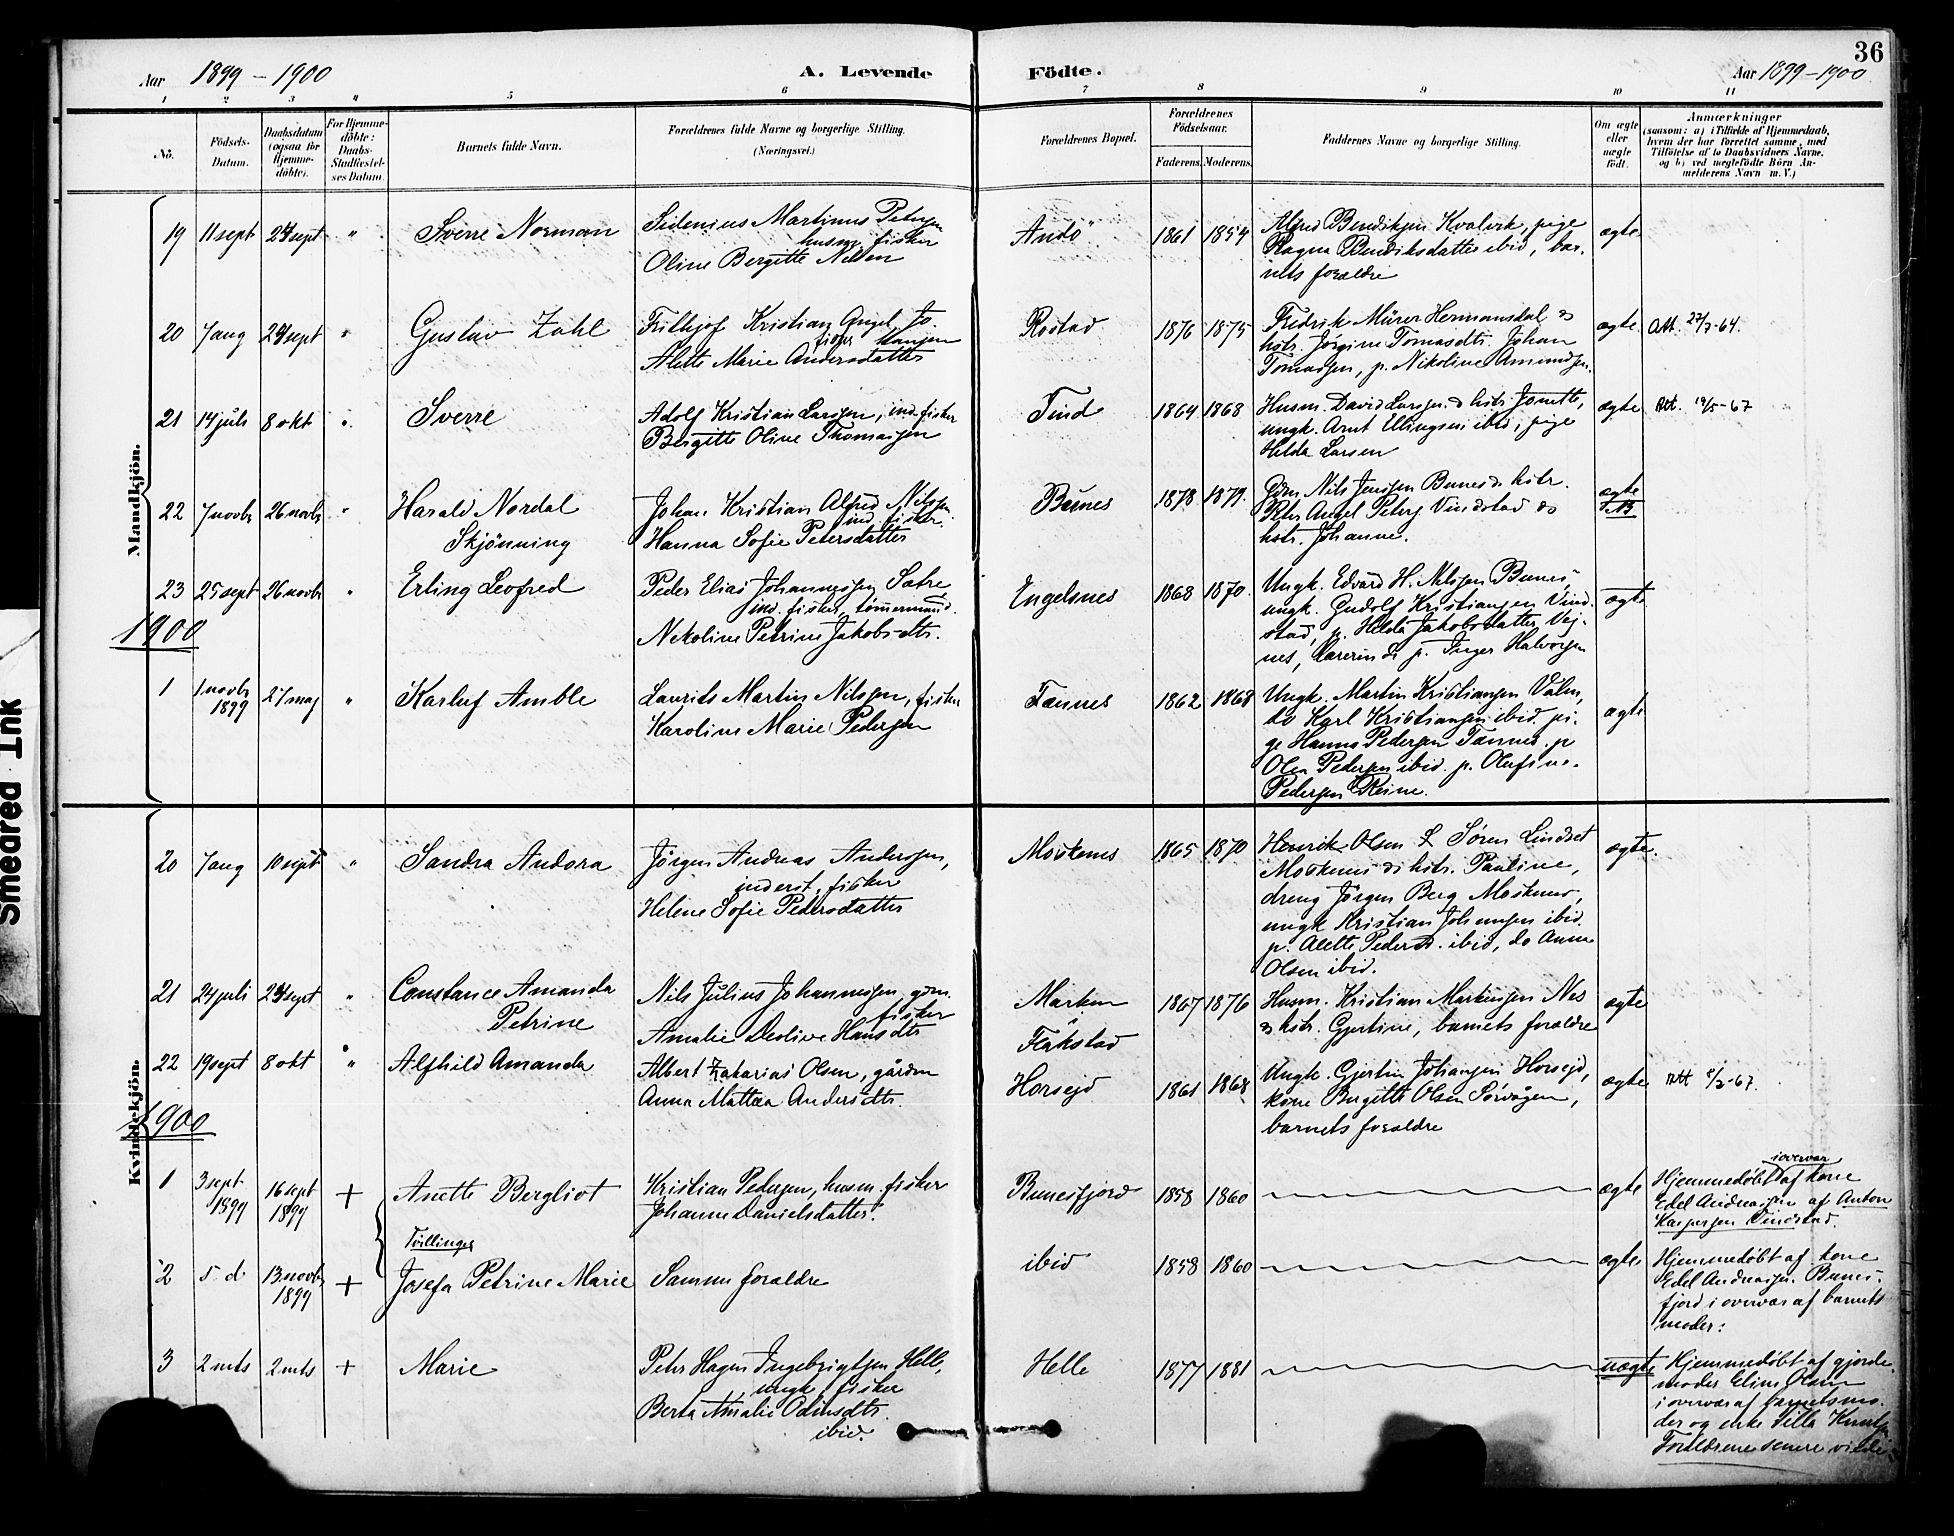 36
Aar 1899 - 1900
A. Levende Födte.
Aar 1899-1900
1 2 3 4 5 6 7 8 9 10 11
No.
Födsels-
Datum.
Daabsdatum
(ogsaa for
Hjemme-
döbte).
For Hjemme-
döbte:
Daabs-
Stadfæstel-
ses Datum.
Barnets fulde Navn.
Forældrenes fulde Navne og borgerlige Stilling.
(Næringsvei.)
Forældrenes Bopæl.
Forældrenes
Födselsaar.
Faderens. Moderens.
Faddernes Navne og borgerlige Stilling.
Om ægte
eller
uægte
født.
Anmærkninger
(saasom: a) i Tilfælde af Hjemmedaab,
hvem der har forrettet samme, med
Tilföielse af to Daabsvidners Navne,
og b) ved uægtefödte Börn An-
melderens Navn m. V.)
Mandkjön.
19 11 sept 24 sept " Sverre Norman
Sidenius Martinus Petersen
husm. fisker
Oline Bergitte Nilsen
Andö 1861 1854
Alfred Bendiksen Kvalvik, pige
Ragna Bendiksdatter ibid, bar-
nets forældre
ægte
20 7 aug 24 sept " Gustav Zahl
Frithjof Kristian Angel Jo-
hansen
fisker
Alette Marie Andersdatter
Rostad 1876 1875
Fredrik Mürer Hermansdal &
hstr. Jørgine Tomasdtr. Johan
Tomassen, p. Nikoline Amundsen.
ægte. Att. 22/3-64.
21 14 juli 8 okt " Sverre
Adolf Kristian Larssen, ind. fisker
Bergitte Oline Thomassen
Tind 1864 1868
Husm. David Larssen & hstr. Janette,
ungk. Arnt Ellingsen ibid, pige
Helda Larsen
ægte Att. 19/5-67
22 7 novbr 26 novbr " Harald Nordal
Skjönning
Johan Kristian Alfred Nilssen
ind. fisker.
Hanna Sofie Petersdatter
Bunes 1878 1879.
Gdm Nils Jenssen Bunes & hstr.
Petr Angel Peters. Vindstad &
hstr. Johanne.
ægte
23 25 sept 26 novbr " Erling Leofred
Peder Elias Johannessen Sætre
ind. fisker, tømmermand.
Nekoline Petrine Jakobsdtr.
Engelsnes 1868 1870.
Ungk. Edvard H. Nilssen Bunes,
ungk. Gudolf Kristiansen Vind-
stad, p. Helda Jakobsdatter Vej-
nes, Lærerinde p. Inger Halvorsen
ægte
1900
1 1 novbr
1899 27 maj " Karluf Amble
Laurits Martin Nilssen, fisker
Karoline Marie Pedersen
Tennes 1862 1868
Ungk. Martin Kristiansen Valen,
do Karl Kristiansen ibid. pi-
ge Hanna Pedersen Tennes. p
Olea Pedersen ibid. p. Olufine
Pedersen Reine.
ægte
Kvindekjön.
20 7 aug 10 sept " Sandra Andora
Jörgen Andreas Anderssen,
inderst, fisker
Helene Sofie Pedersdatter
Moskenes 1865 1870
Henrik Olsen & Sören Lindset
Moskenes & hstr. Pauline,
dreng Jörgen Berg Moskenes,
ungk Kristian Johansen ibid.
p. Alette Pedersd. ibid, do Anna
Olsen ibid.
ægte.
21 24 juli 24 sept " Constance Amanda
Petrine
Nils Julius Johannessen, gdm.
fisker
Amalie Deolive Hansdtr
Marken
Flakstad 1867 1876
Husm. Kristian Markussen Nes
& hstr. Gjertine, barnets forældre
ægte
22 19 sept 8 okt " Alfhild Amanda
Albert Zakarias Olsen, gårdm
Anna Mattea Andersdtr.
Horseid 1861 1868
Ungk. Gjertin Johansen Horseid,
kone Bergitte Olsen Sörvågen,
barnets forældre
ægte Att 8/3-67.
1900
1 3 sept.
1899 16 sept
1899 + Anette Bergliot
Kristian Pedersen, husm. fisker
Johanne Danielsdatter.
Bunesfjord 1858 1860
ægte
Hjemmedöbt i overvær af kone
Edel Andreassen af Anton
Kaspersen Vindstad.
Tvillinger
2 5. d 13 novbr
1899 + Josefa Petrine Marie
Samme forældre
ibid 1858 1860
ægte
Hjemmedöbt af kone
Edel Andreassen. Bunes-
fjord i overvær af barnets
moder.
3 2 mts 2 mts + Marie
Petr Hagen Ingebrigtsen Helle,
ungk. fisker
Berta Amalie Odinsdtr.
ibid.
Helle 1877 1881
uægte
Hjemmedöbt af gjorde-
moder Eline Olsen
i overvær af barnets mo-
der og enke Silla Knuts
Forældrene senere viede
Smeared Ink